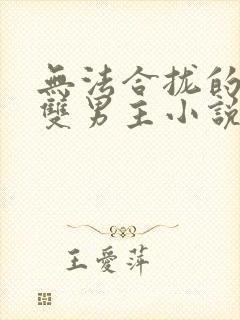 無法合拢的
雙男主小説
王愛萍